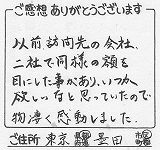 ご感想ありがとうございます
以前訪問先の会社、
二社で同様の額を
目にした事があり、いつか
欲しいなと思っていたので
物凄く感動しました。
ご住所 東京 都道府県 墨田 市区町村